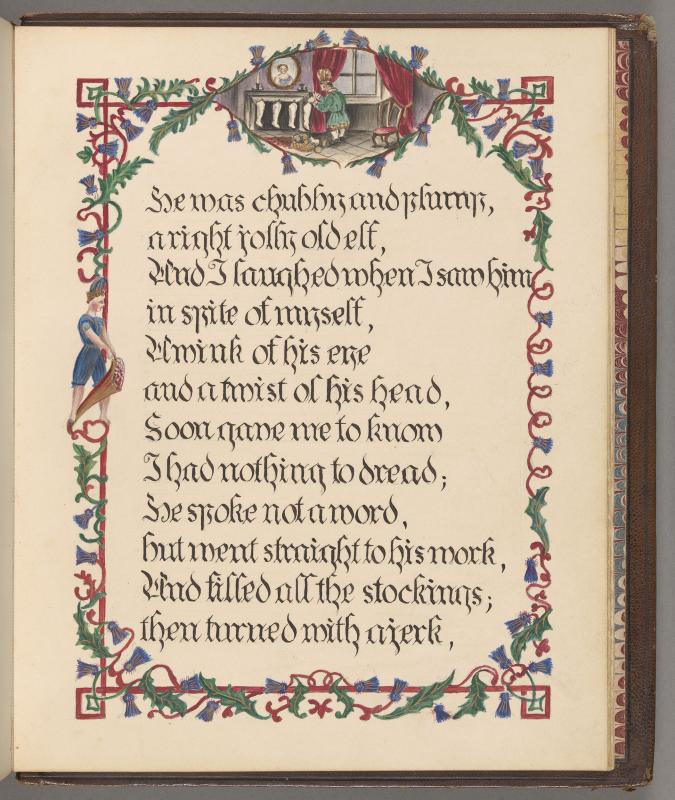 He was chubby and plump,
a right jolly old elf,
And I laughed when I saw him
in spite of myself,
A wink of his eye
and a twist of his head,
Soon gave me to know
I had nothing to dread;
He spoke not a word,
but went straight to his work,
And filled all the stockings;
then turned with a jerk,